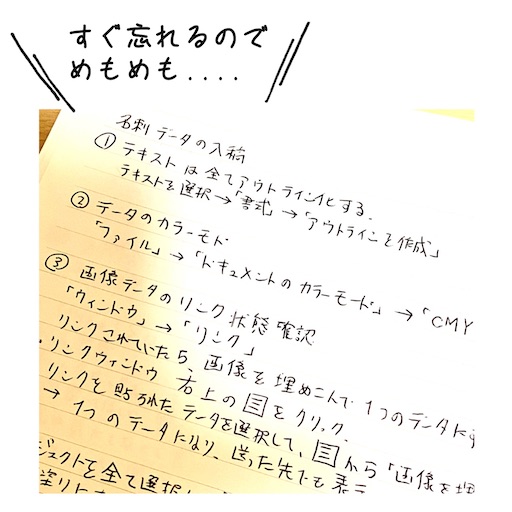 すぐ忘れるので
めもめも....
名刺データの入稿
① テキストは全てアウトライン化する.
テキストを選択→「書式」→「アウトラインを作成」
② データのカラーモド
「ファイル」→「ドキュメントのカラーモード」→「CMY
③ 画像データのリンク状態確認
「ウィンドウ」→「リンク」
リンクされていたら、画像を埋めこんで1つのデータにす
・リンクウィンドウ 右上の をクリック.
リンクを貼られたデータを選択して、 から「画像を埋
→ 1つのデータになり、送った先でも表示
ジェクトを全て選択し